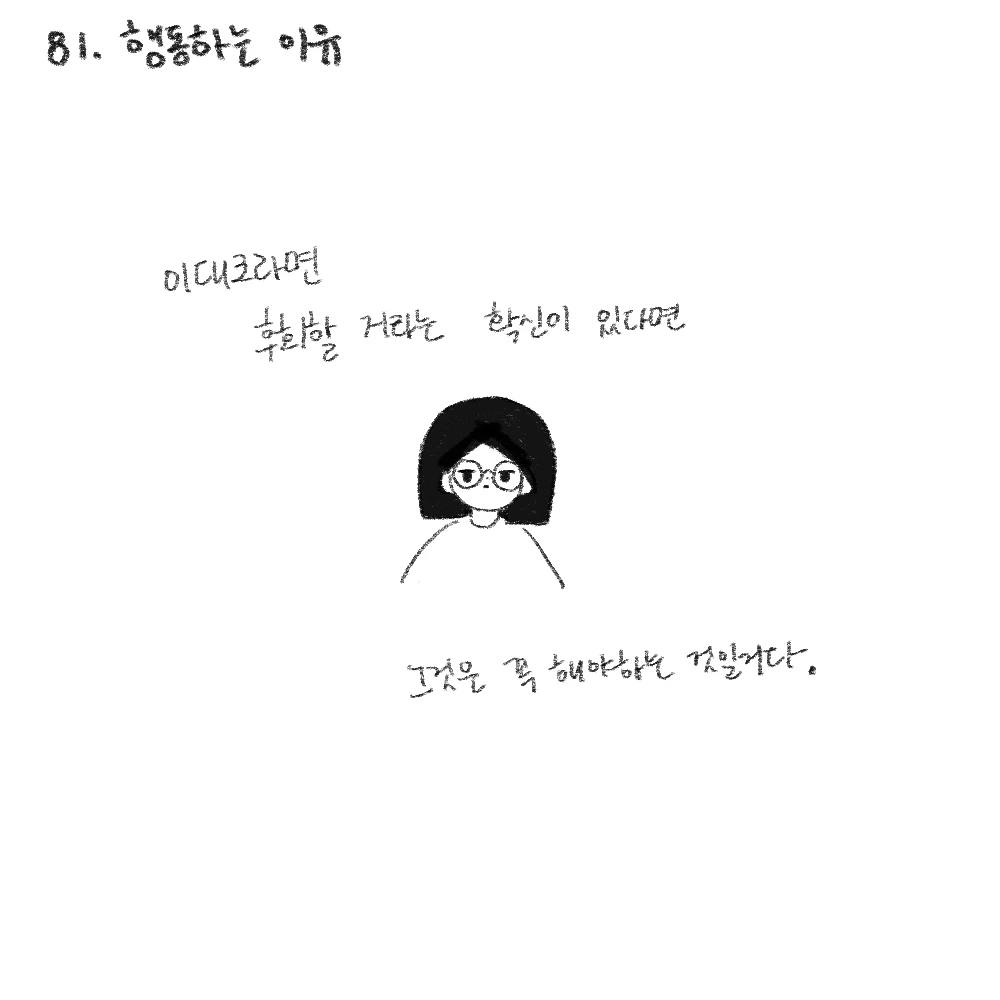 81. 행동하는 이유
이대크라면
후회할 거라는 확신이 있다면
그것은 꼭 해야하는 것일거다.